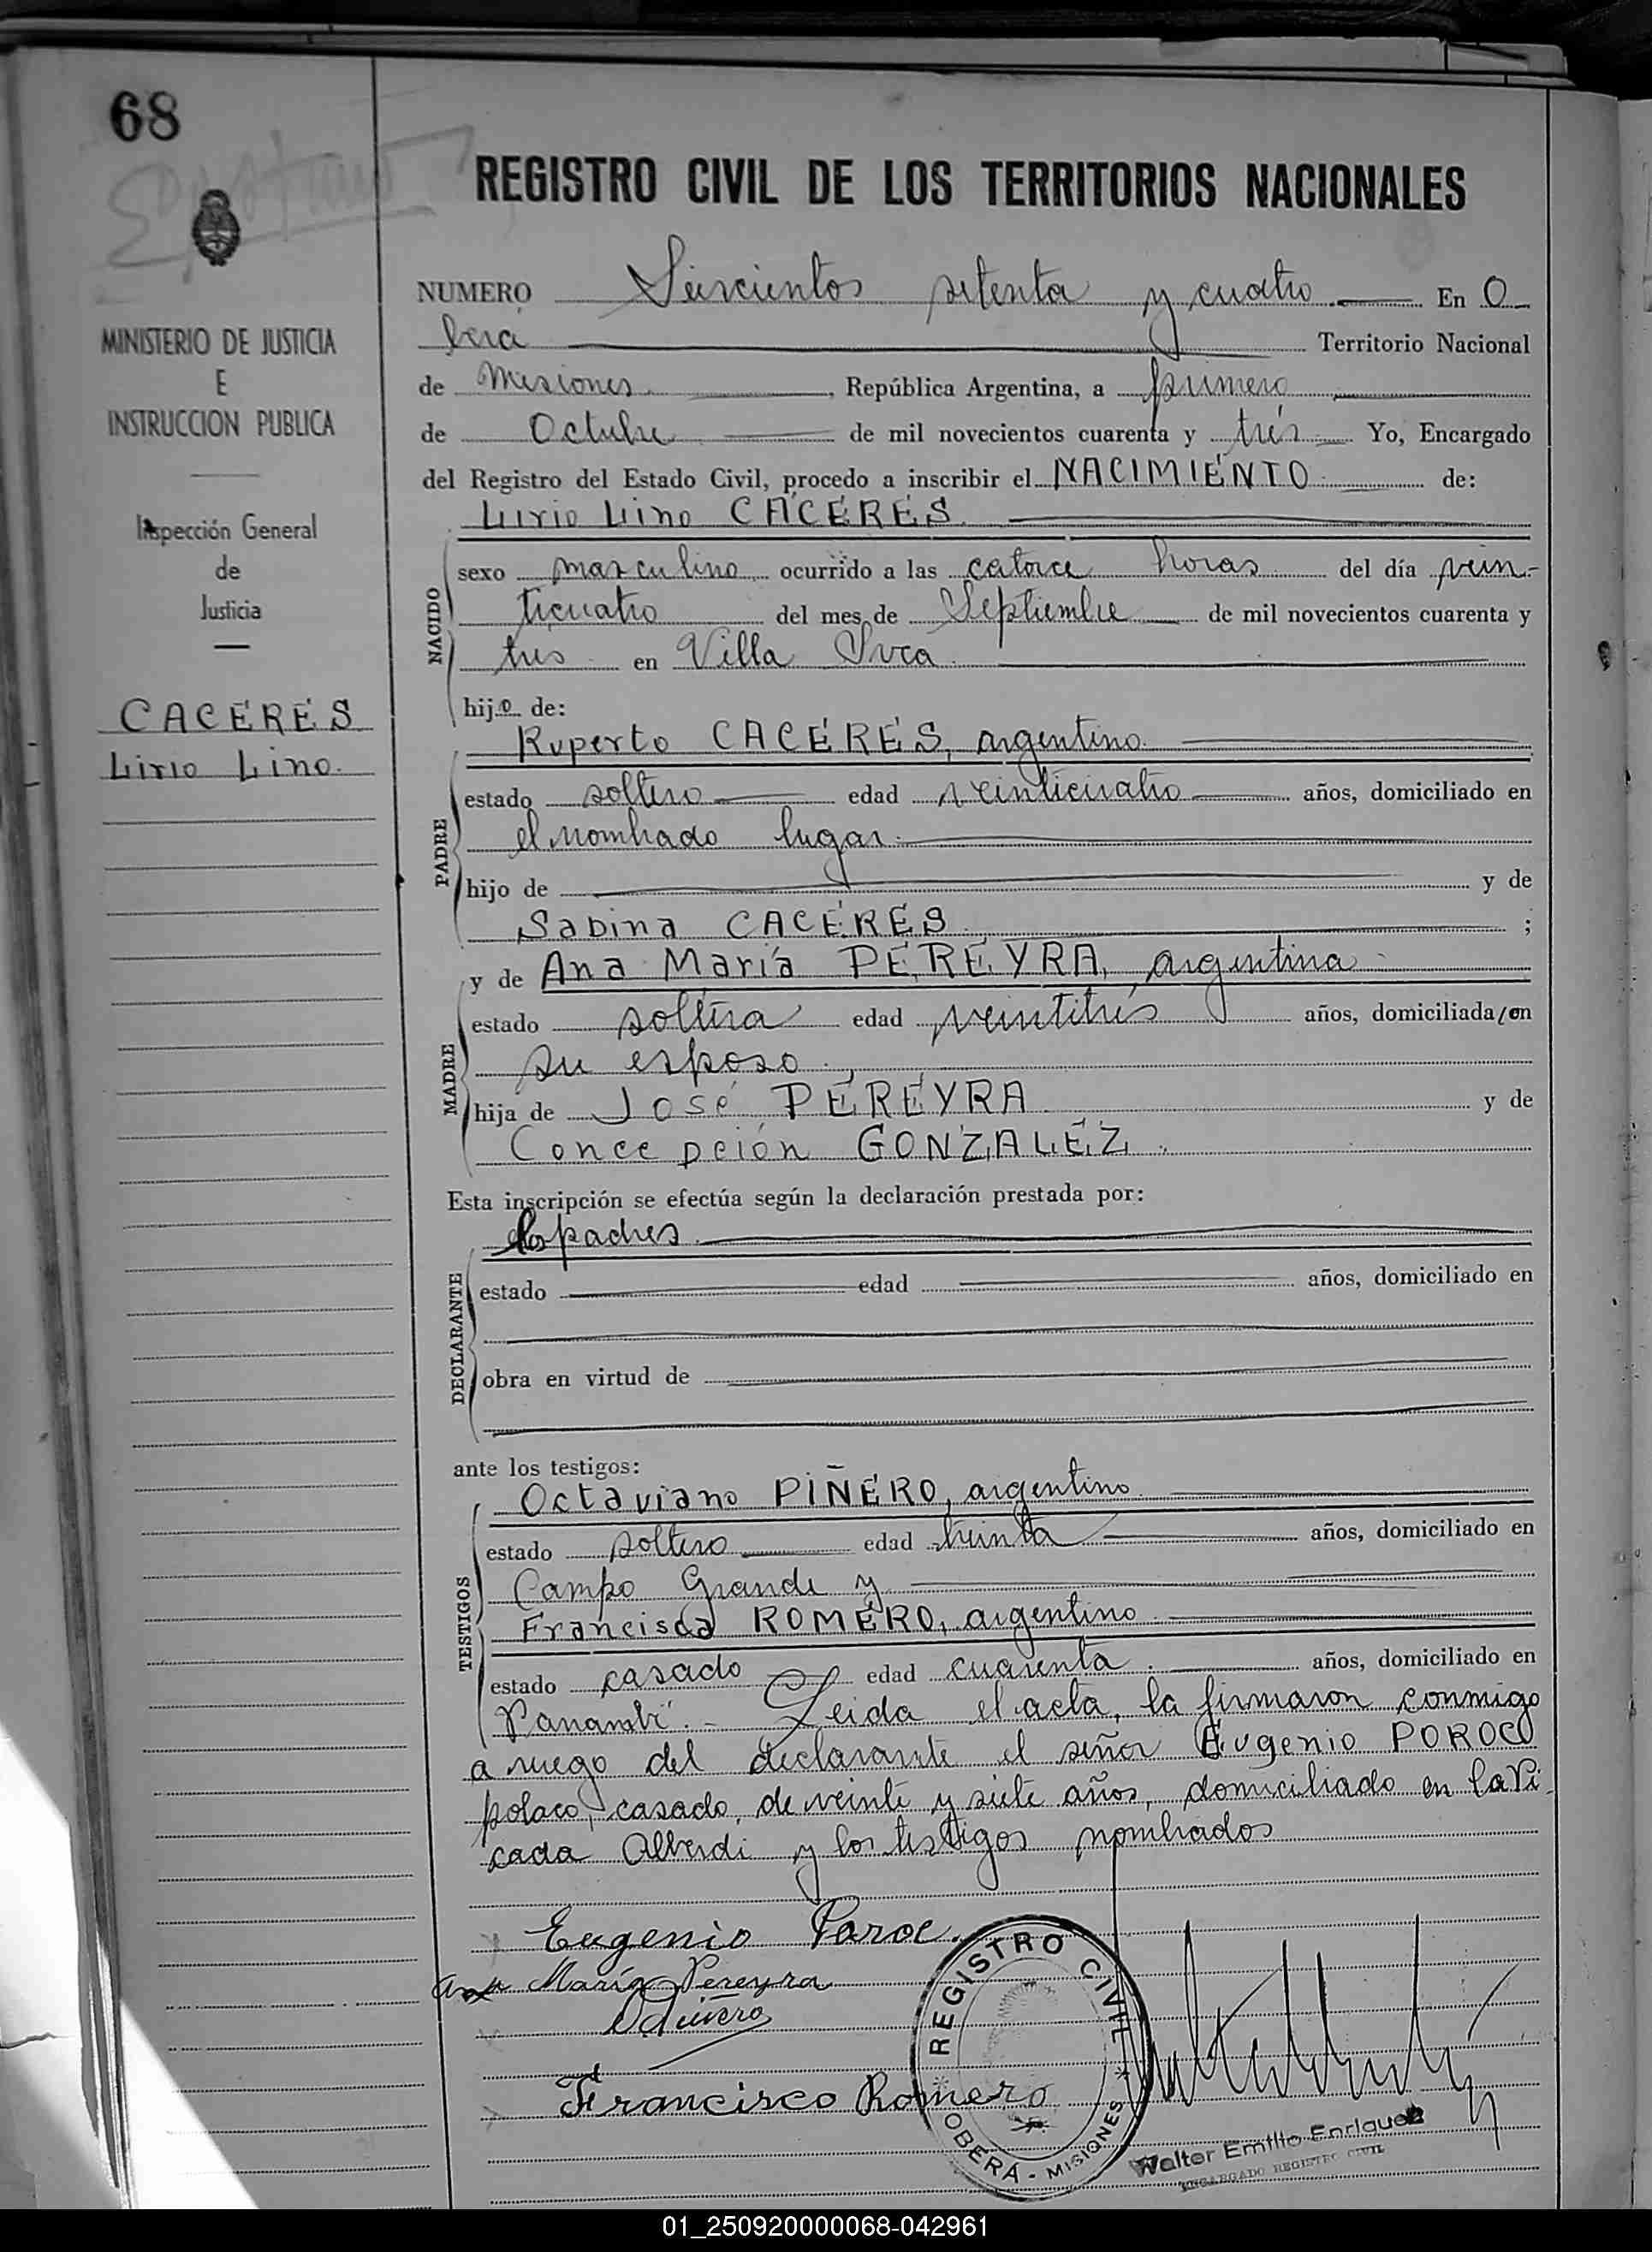 68
REGISTRO CIVIL DE LOS TERRITORIOS NACIONALES
NUMERO Seiscientos setenta y cuatro. En O
berá Territorio Nacional
de Misiones. , República Argentina, a primero
de Octubre de mil novecientos cuarenta y trés Yo, Encargado
del Registro del Estado Civil, procedo a inscribir el NACIMIENTO de:
Lirio Lino CACERES.
NACIDO
sexo masculino ocurrido a las catorce horas del día vein-
ticuatro del mes de Septiembre de mil novecientos cuarenta y
tres en Villa Svea.
hijo de:
PADRE
Ruperto CACERES, argentino.
estado soltero edad veinticuatro años, domiciliado en
el nombrado lugar.
hijo de y de
Sabina CACERES ;
MADRE
y de Ana María PEREYRA, argentina
estado soltera edad veintitrés años, domiciliada/en
su esposo.,
hija de José PEREYRA y de
Concepción GONZALEZ.
Esta inscripción se efectúa según la declaración prestada por:
DECLARANTE
los padres
estado edad años, domiciliado en
obra en virtud de
ante los testigos:
TESTIGOS
Octaviano PIÑERO, argentino.
estado soltero edad treinta años, domiciliado en
Campo Grande y
Francisco ROMERO, argentino
estado casado edad cuarenta. años, domiciliado en
Panambí.- Leida el acta, la firmaron conmigo
a ruego del declarante el señor Eugenio POROC
polaco, casado, de veinte y siete años, domiciliado en la Pi
cada Alberdi y los testigos nombrados
Eugenio Poroc.
Ana María Pereyra
OPiñero
Francisco Romero
REGISTRO CIVIL
OBERA - MISIONES
Walter Emilio Enriquez
ENCARGADO REGISTRO CIVIL
MINISTERIO DE JUSTICIA
E
INSTRUCCION PUBLICA
Inspección General
de
Justicia
CACERES
Lirio Lino.
01_250920000068-042961